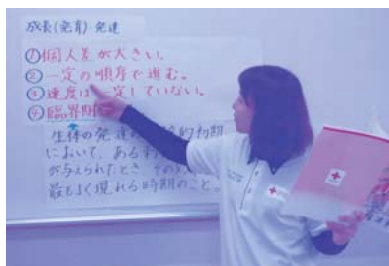 成長(発育)・発達
①個人差が大きい。
②一定の順序で進む。
③速度は一定していない。
④臨界期
生体の発達の 的初期
において、ある
が与えられたとき、その
最もよく現れる時期のこと。